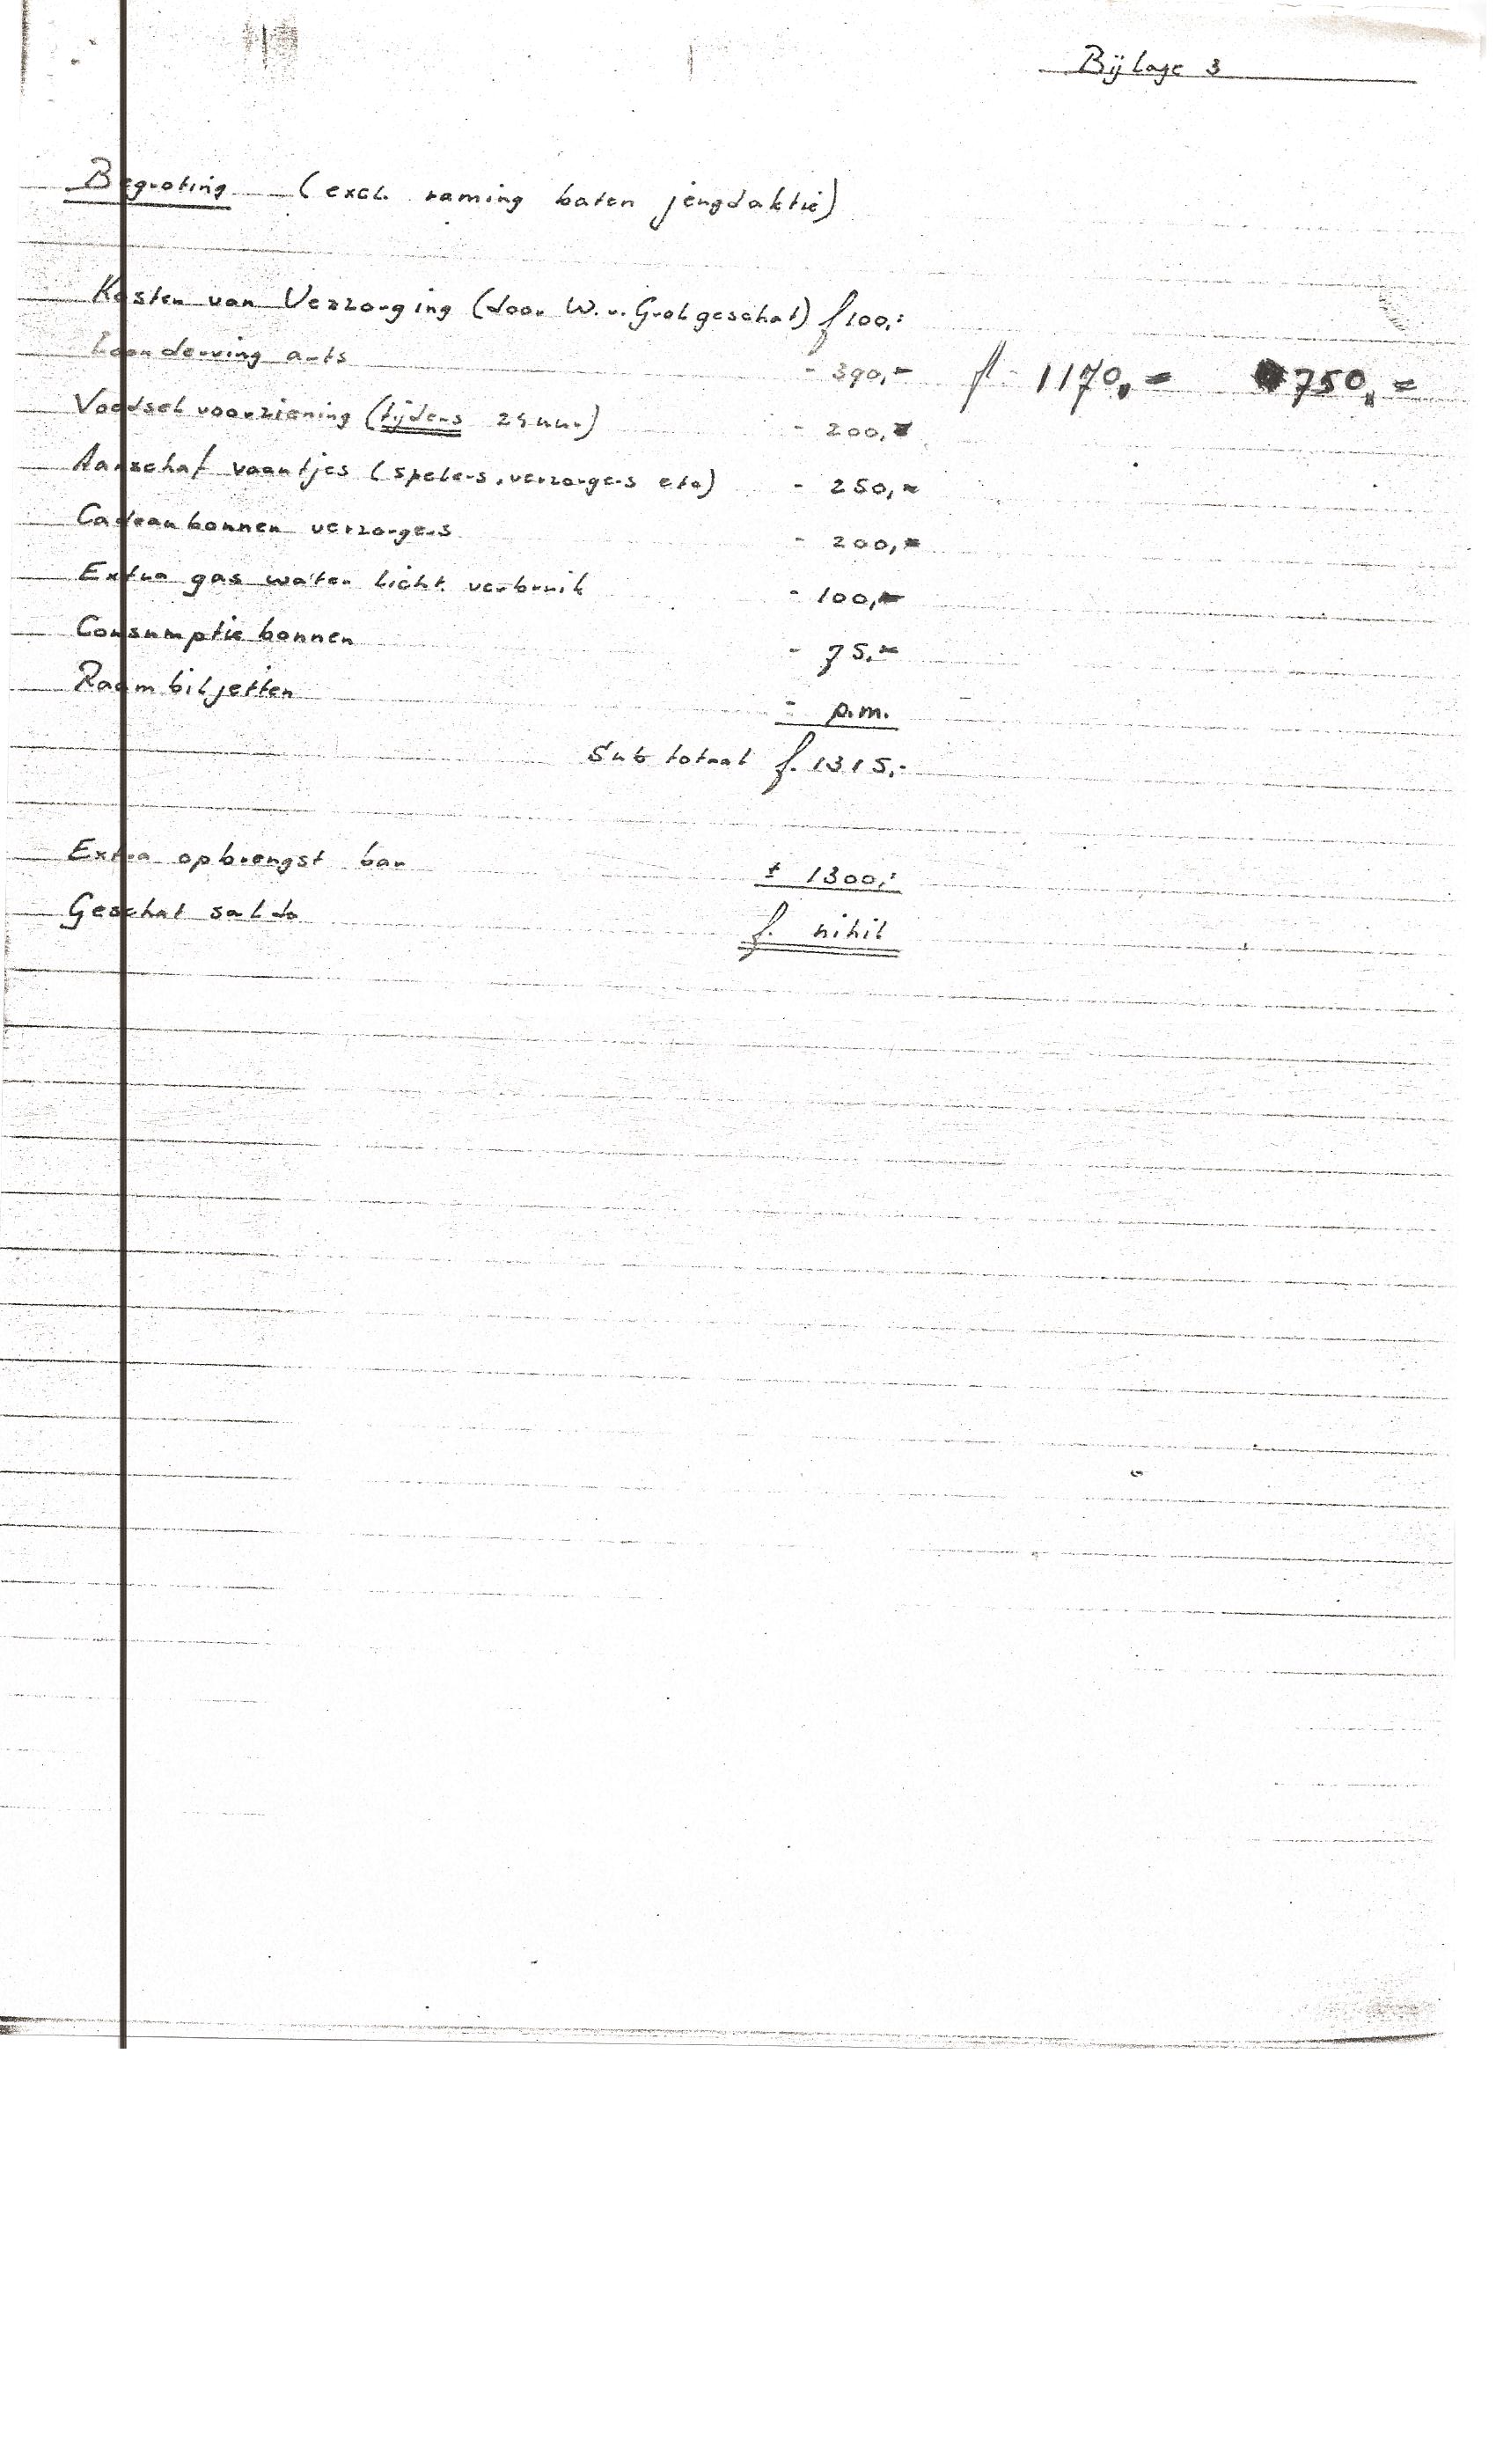 Bijlage 3
Begroting (excl. raming baten jeugdaktie)
Kosten van Verzorging (door W.v. Grol geschat) f 100,-
Loonderving arts - 390,- f 1170,= 750,=
Voedselvoorziening (tijdens 24 uur) - 200,-
Aanschaf vaantjes (spelers, verzorgers etc) - 250,-
Cadeaubonnen verzorgers - 200,-
Extra gas water licht verbruik - 100,-
Consumptiebonnen - 75,-
Raambiljetten - p.m.
Subtotaal f. 1315,-
Extra opbrengst bar ± 1300,-
Geschat saldo f. nihil